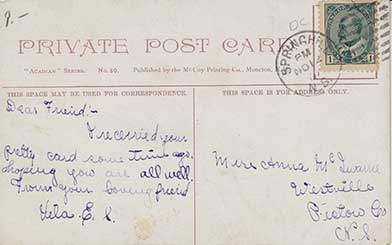 9.-
OC
PRIVATE POST CARD
"ACADIAN" SERIES. No. 50. Published by the McCoy Printing Co., Moncton.
SPRINGHILL
PM
NO 14
N.S.
1 1
THIS SPACE MAY BE USED FOR CORRESPONDENCE.
THIS SPACE IS FOR ADDRESS ONLY.
Dear Friend:-
I recerried your
pretty card some time ago.
hoping you are all well.
From your loving friend
Lela E. S.
Miss Anna McSwane
Westville
Pictou Co
N.S.